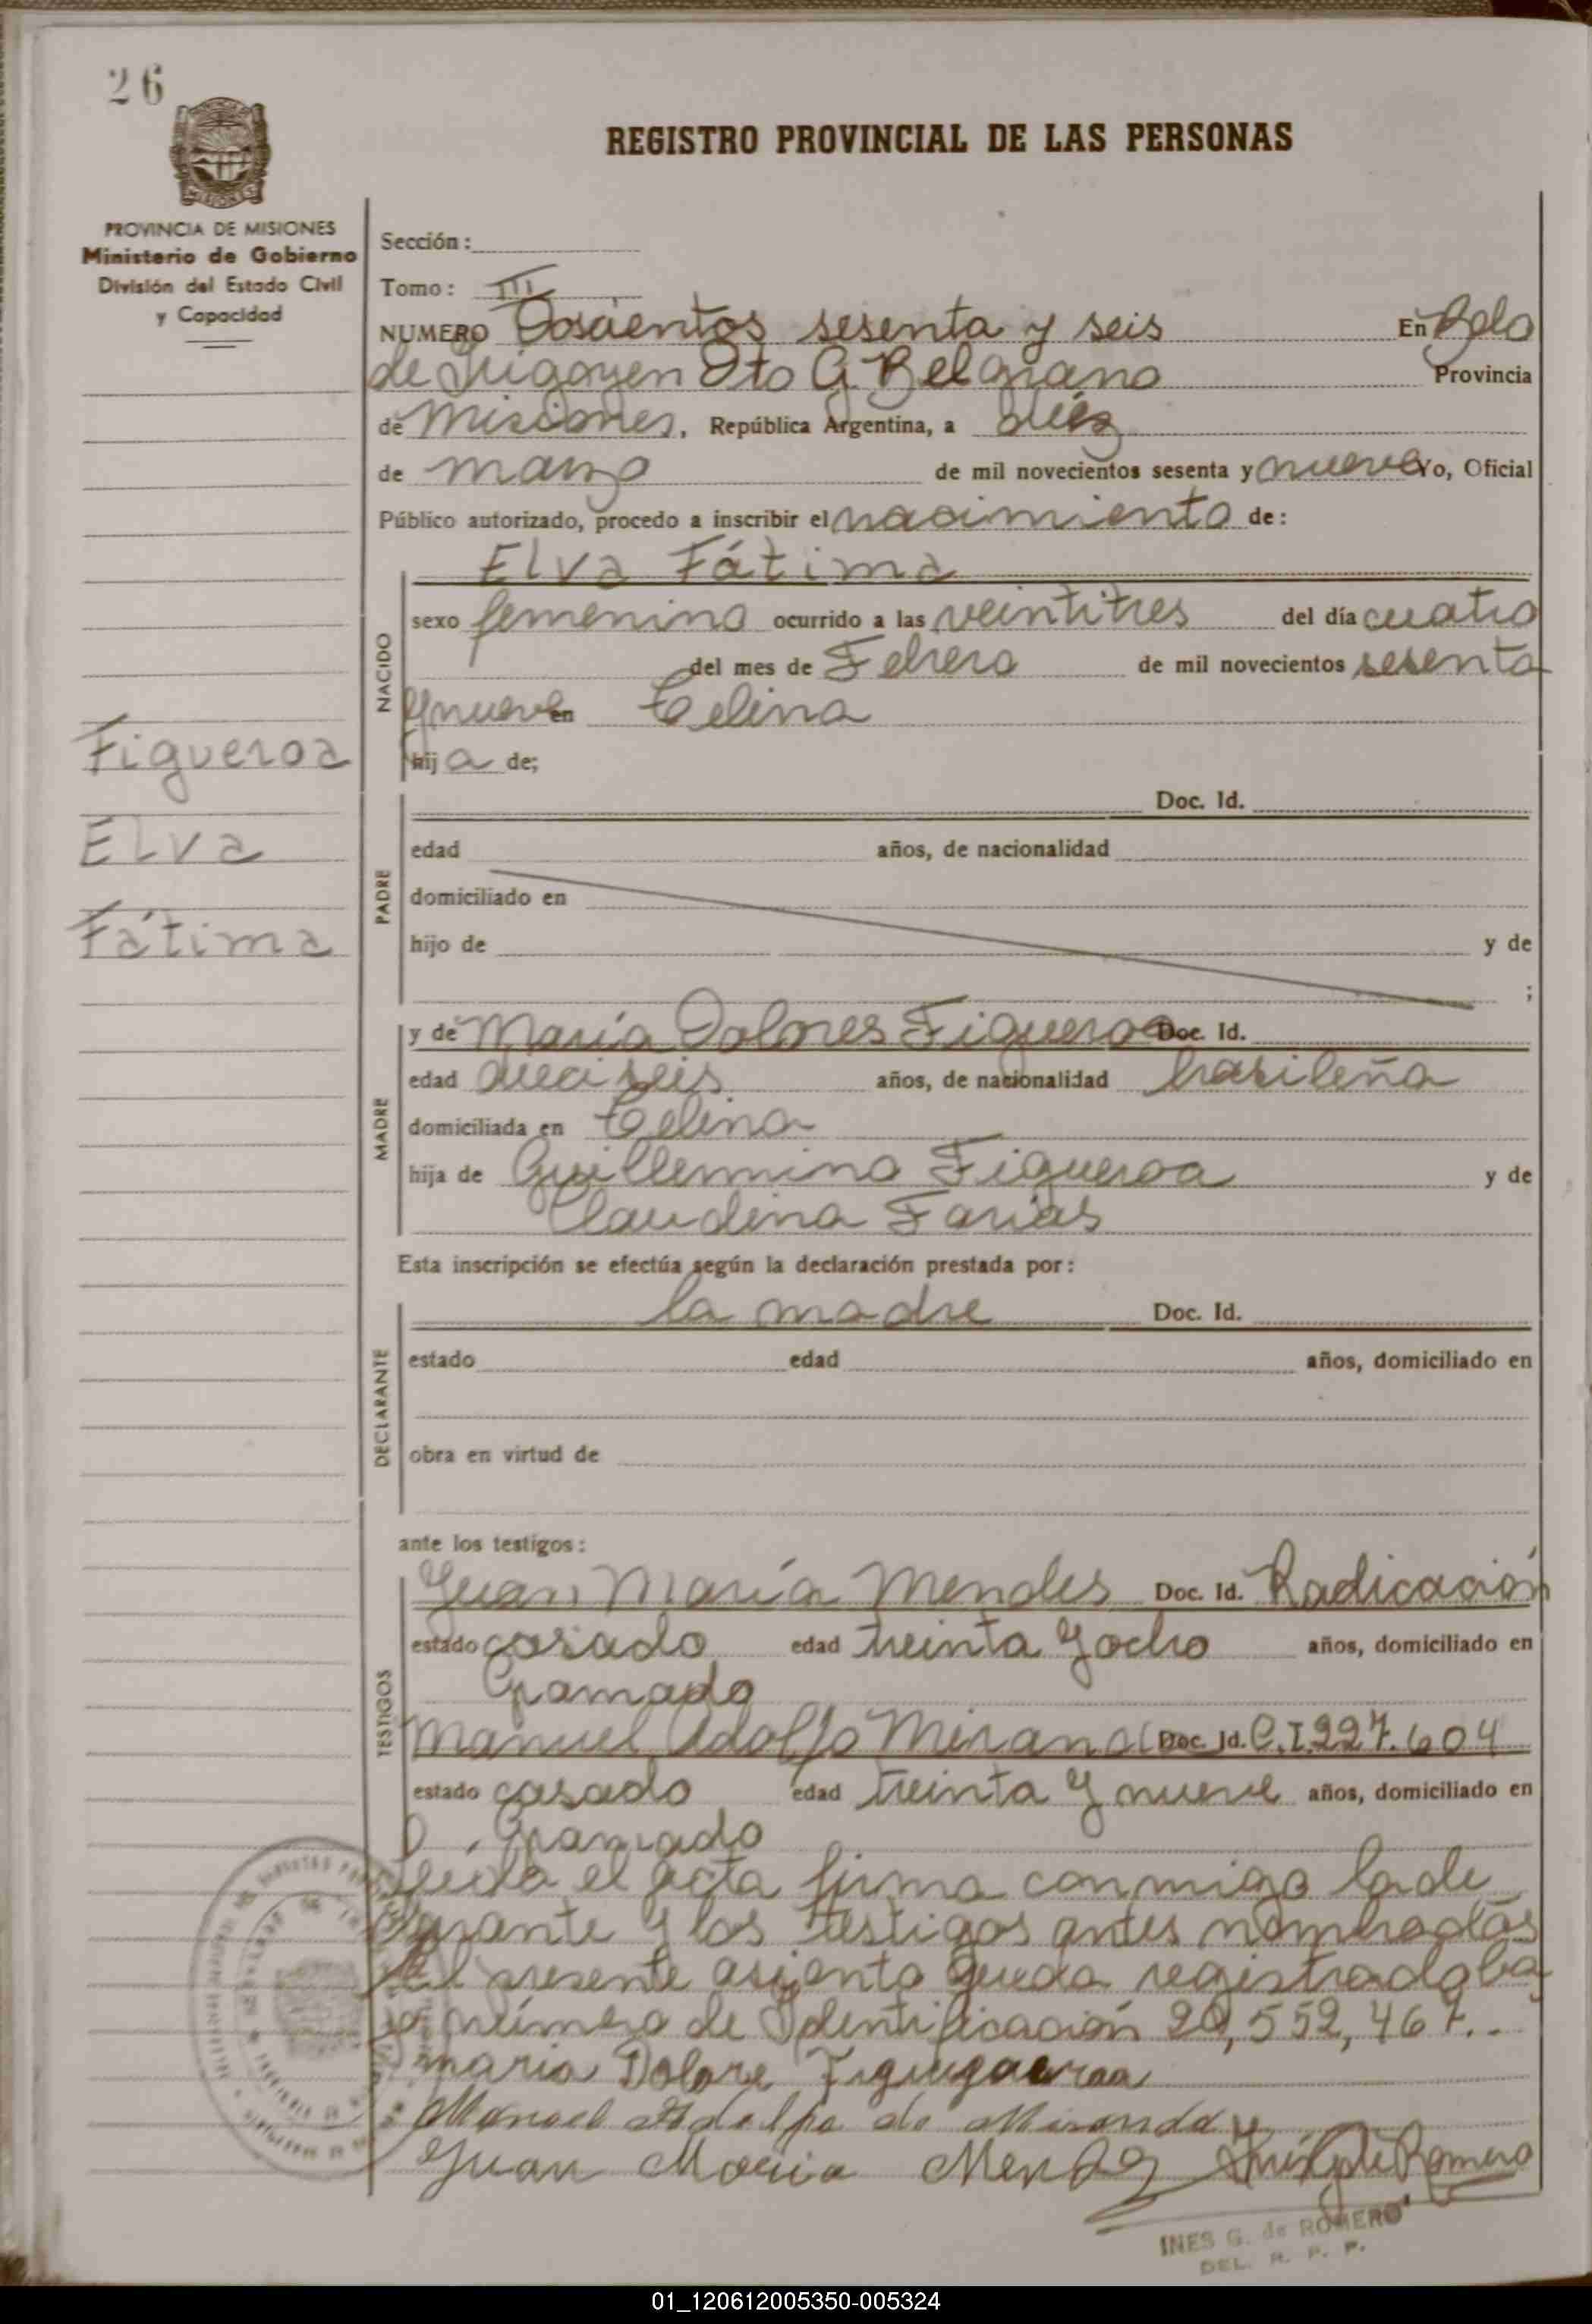 26
REGISTRO PROVINCIAL DE LAS PERSONAS
PROVINCIA DE MISIONES
Ministerio de Gobierno
División del Estado Civil
y Capacidad
Sección:
Tomo: III
NUMERO Doscientos sesenta y seis En Bdo
de Irigoyen Dto G. Belgrano Provincia
de Misiones, República Argentina, a diez
de marzo de mil novecientos sesenta y nueve Yo, Oficial
Público autorizado, procedo a inscribir el nacimiento de:
Elva Fátima
NACIDO
sexo femenino ocurrido a las veintitres del día cuatro
del mes de Febrero de mil novecientos sesenta
y nueve en Celina
hija de;
Figueroa
Elva
Fátima
PADRE
Doc. Id.
edad años, de nacionalidad
domiciliado en
hijo de y de
;
MADRE
y de María Dolores Figueroa Doc. Id.
edad dieciseis años, de nacionalidad brasileña
domiciliada en Celina
hija de Guillermino Figueroa y de
Claudina Farias
Esta inscripción se efectúa según la declaración prestada por:
DECLARANTE
la madre Doc. Id.
estado edad años, domiciliado en
obra en virtud de
ante los testigos:
TESTIGOS
Juan María Mendes Doc. Id. Radicación
estado casado edad treinta y ocho años, domiciliado en
Gramado
Manuel Adolfo Miranda Doc. Id. C.I.227.604
estado casado edad treinta y nueve años, domiciliado en
Gramado
Leída el acta firma conmigo la de
clarante y los testigos antes nombrados
El presente asiento queda registrado ba
jo número de Identificación 20,552,467..
maria Dolore
Manoel Adolfo de Miranda
Juan Maria Mendez
INES G. de ROMERO
DEL. R. P. P.
01_120612005350-005324